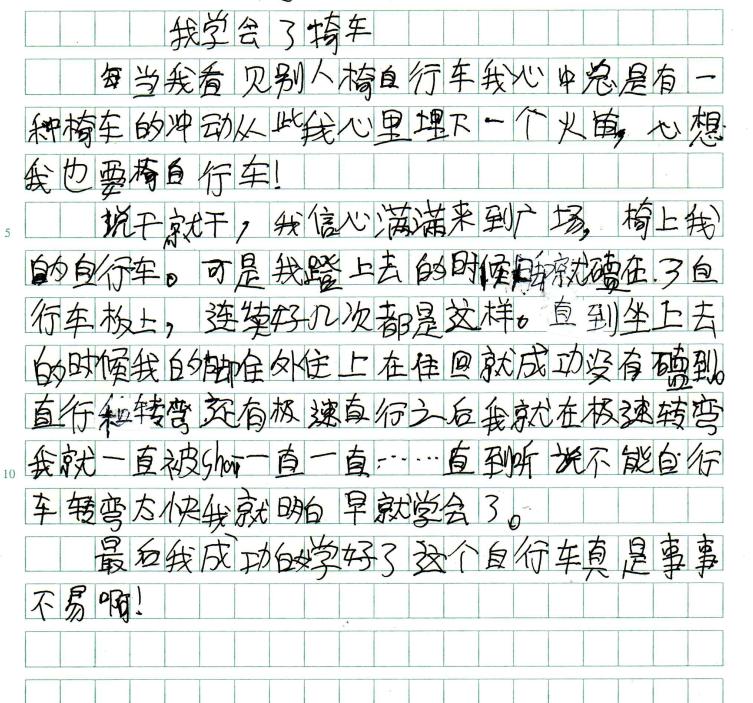 我学会了椅车
每当我看见别人椅自行车我心中总是有一
种椅车的冲动从些我心里埋下一个火苗，心想
我也要椅自行车！
5
说干就干，我信心满满来到广场，椅上我
的自行车。可是我蹬上去的时候就磕在了自
行车板上，连续好几次都是这样。直到坐上去
的时候我的脚往外住上在住回就成功没有磕到。
直行和转弯还有极速直行之后我就在极速转弯
10
我就一直被shai一直一直……直到听说不能自行
车转弯太快我就明白早就学会了。
最后我成功的学好了这个自行车真是事事
不易啊！